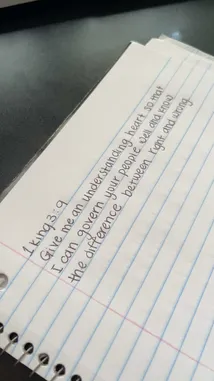 1 king 3:9
Give me an understanding heart so that
I can govern your people well and know
the difference between right and wrong.